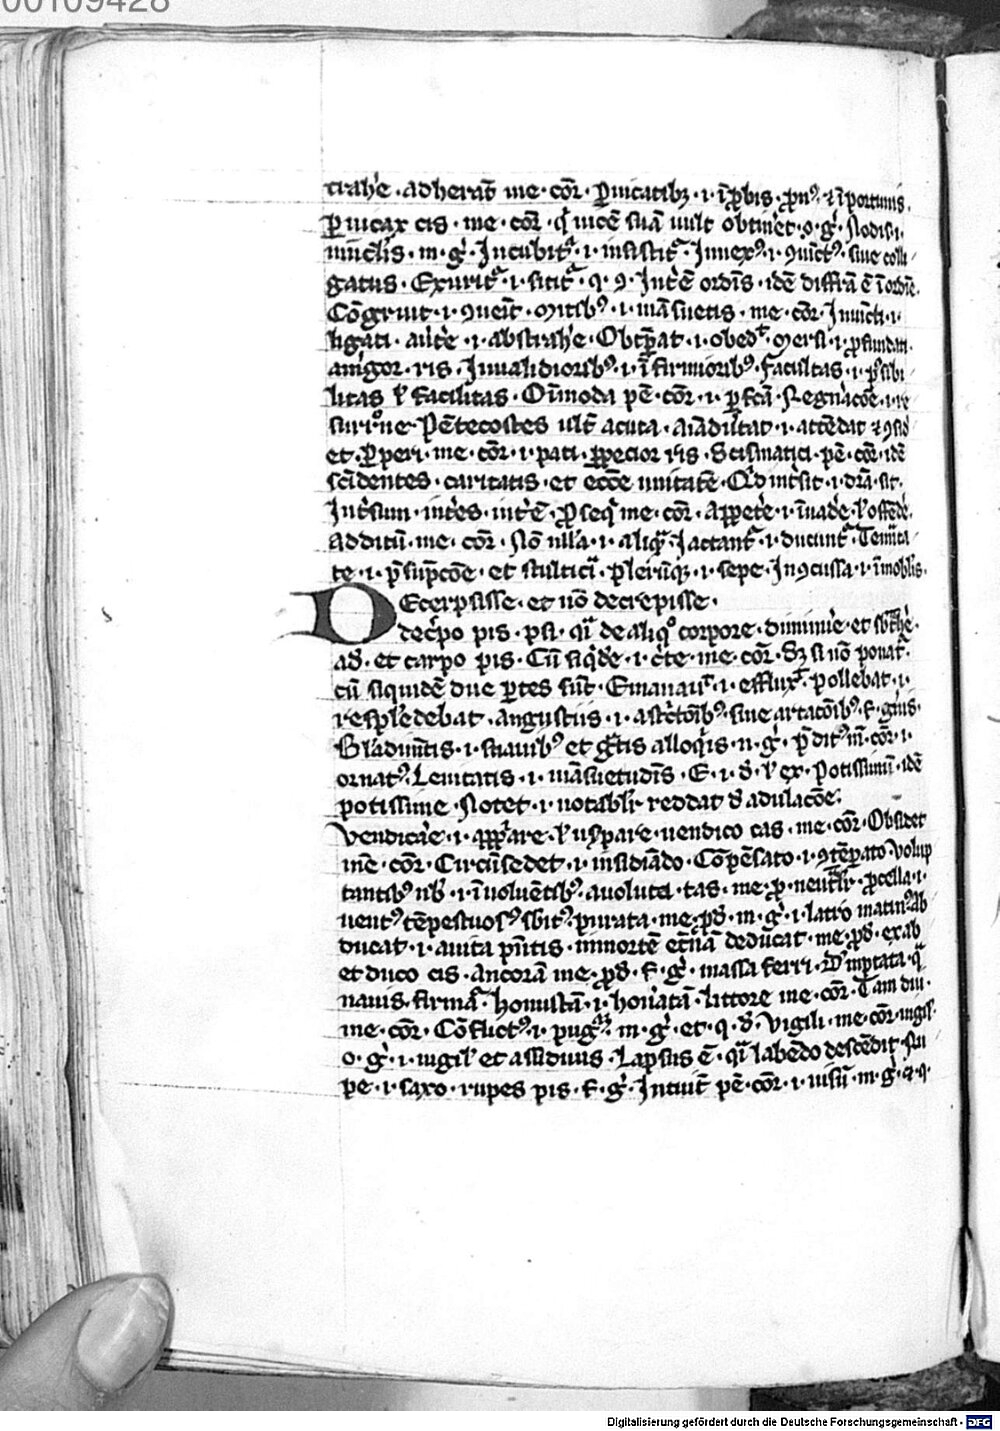 00109428
trah'e · adherat̄ me · cōr · ꝑuicatibꝫ · i · īꝓbis · ꝓnꝰ · ⁊ īportunis ·
ꝑuicax cis · me · cōr · q̇ uicē suā uult obtin̄et · o · g̊ · Nodis · i ·
uinc̄lis · m · g̊ · Incubit᷑ · i · insistit᷑ · Innexꝰ · i · ꝯuinctꝰ · siue colli
gatus · Exurit᷑ · i · sitit᷑ · q · ꝯ · Int̄e ordīs · idē diffr̄a ē ī ordīe ·
Cōgruit · i · ꝯueīt · Mitibꝰ · i · māsuetis · me · cōr · Iniūcti · i ·
ligati · au̓te · i · abstrah'e · Obtꝑat · i · obed᷑ · Mersi · i · ꝓfundati ·
amīgor · ris · Inualidioribꝰ · i · īfirmioribꝰ · facultas · i · p̄sibi
litas ł facilitas · Oīmoda pē · cōr · i · ꝑfcā · Regnacōe · i · re
Pētecostes ult̄ acuta · aīaduertat · i · attēdat ⁊ ꝯsid̓
et · ꝑperi · me · cōr · i · pati · ꝑpecior ris · Scismatici · pē · cōr · idē
scīdentes · caritatis · et eccē unitatē · Qd̓ int̓sit · i · dr̄a · sit ·
Int̓sum · int̓es · int̓ē · ꝓseq̇ me · cōr · appet̓e · i · īuade · ł offēde̓ ·
additū · me · cōr · Nō nłła · i · aliq̄ · Iactant᷑ · i · ducunt᷑ · Temīta
te · i · p̄sūpcōe · et stulticī · pleriq̄ꝫ · i · sepe · Inꝯcussa · i · īmobl̓is ·
DEcerpsisse · et nō decrepisse ·
dec̓po pis · psi · qī de aliqͦ corpore · diminu̓e · et sbt̄he̓ ·
ad · et carpo pis · Cū siq̇de · i · c̓te · me · cōr · Sꝫ si nō ponat᷑ ·
cū siquidē due ꝑtes sūt · Emanaut᷑ · i · efflux᷑ · pollebat · i ·
resplēdebat · angustiis · i · astc̓tōibꝰ · siue artacōibꝰ · f · gn̄is ·
Blādimtis · i · suauibꝰ et g̓tis alloq̇is · n · g̊ · p̄ditꝰ m̄ · cōr · i ·
ornatꝰ · Lenitatis · i · māsuetudīs · E · i · d̓ · ł ex · Potissimū · idē
potissime · Notet · i · notabl̓r reddat d̓ adulacōe ·
Vendica̓e · i · app̄are · ł usꝑare · uendico cas · me · cōr · Obsidet
me · cōr · Circūsedet · i · insidiādo · Cōpēsato · i · ꝯtēꝑato · Volup
tantibꝰ nb̄ · i · īuoluētibꝰ · auoluta · tas · me · ꝓ · neut̄lr · ꝓcella · i ·
uentꝰ tēpestuosꝰ sbitꝰ · pirata · me · ꝓd̓ · m · g̊ · i · latro marinꝰ · Ab
ducat · i · auita pn̄tis · immortē et̓nā deducat · me · ꝓd̓ · ex ab
et duco cis · Ancorā me · ꝓd̓ · f · g̊ · massa ferri · D̓ imp̄tata · q̄
nauis firmat᷑ · honustā · i · hon̓atā · littore me · cōr · Tam diu ·
me · cōr · Cōflictꝰ · i · pugn̄ · m · g̊ · et · q · d̓ · Vigili · me · cōr · uigil̓
o · g̊ · i · uigil̓ et assiduus · Lapsus ē · qī labēdo descēdit · Ru
pe · i · saxo · rupes pis · f · g̊ · Intuit̄ pē · cōr · i · uisū · m · g̊ · ⁊ · q ·
Digitalisierung gefördert durch die Deutsche Forschungsgemeinschaft - DFG